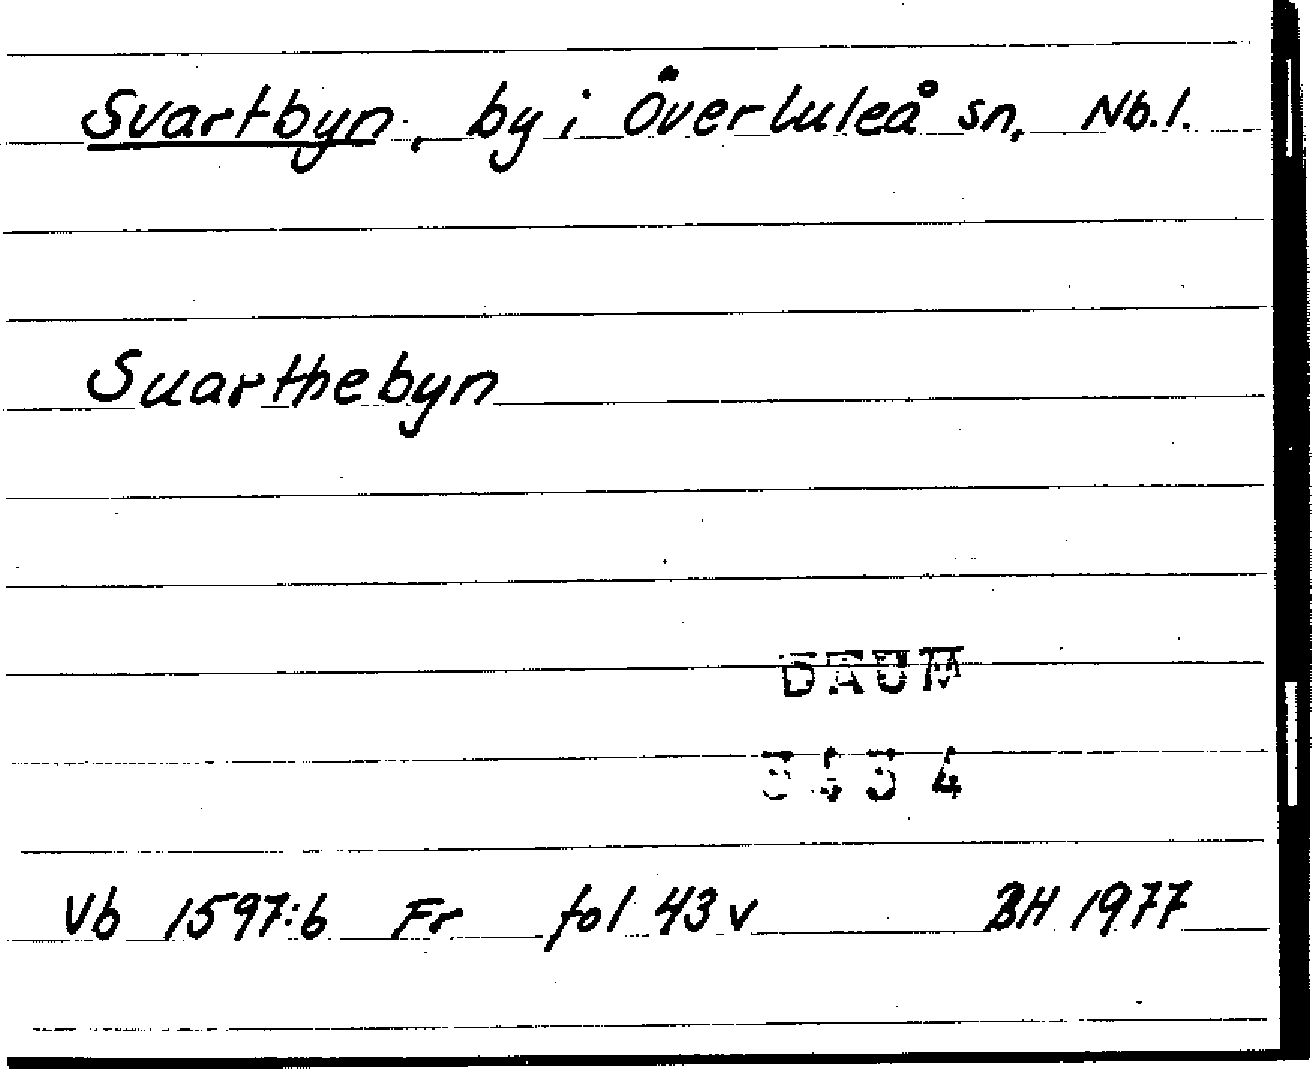 Svartbyn, by i Överluleå sn, Nb.l.
Suarthebyn
DAUM
Vb 1597:6 Fr fol 43 v BH 1977